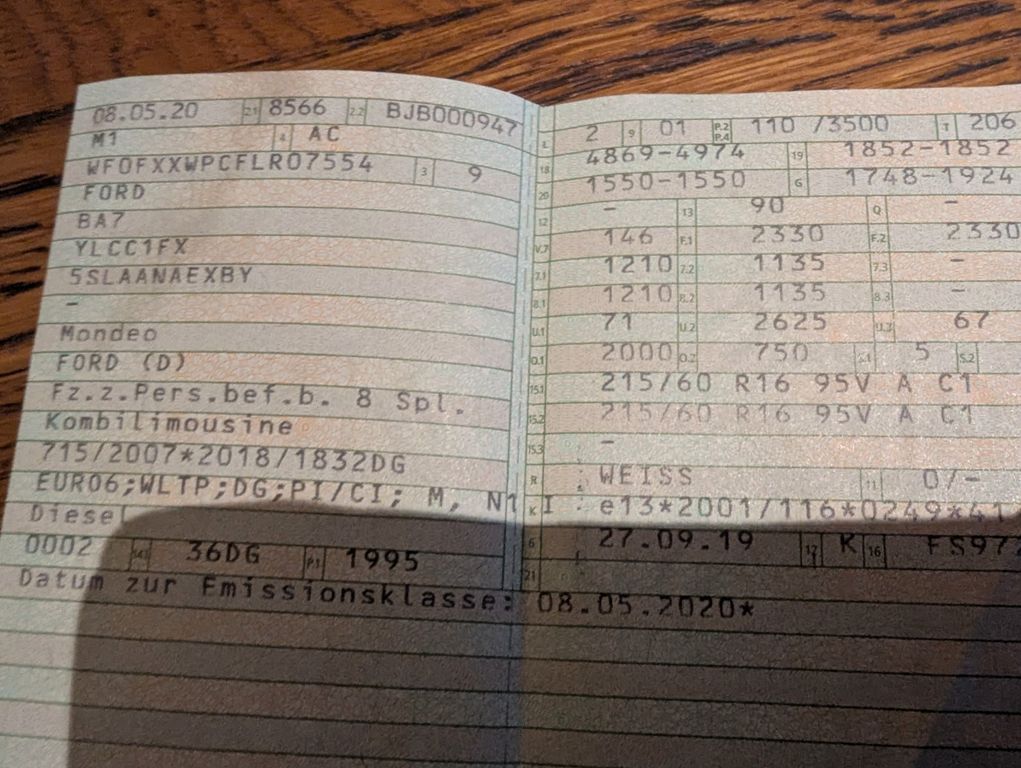 08.05.20 2.1 8566 2.2 BJB000947
M1 4 AC
WF0FXXWPCFLR07554 3 9
FORD
BA7
YLCC1FX
5SLAANAEXBY
–
Mondeo
FORD (D)
Fz.z.Pers.bef.b. 8 Spl.
Kombilimousine
715/2007*2018/1832DG
EURO6;WLTP;DG;PI/CI; M, N1 I
Diesel
0002 14.1 36DG P.1 1995
L 2 9 01 P.2 P.4 110 /3500 T 206
18 4869-4974 19 1852-1852
20 1550-1550 G 1748-1924
12 – 13 90 Q –
V.7 146 F.1 2330 F.2 2330
7.1 1210 7.2 1135 7.3 –
8.1 1210 8.2 1135 8.3 –
U.1 71 U.2 2625 U.3 67
O.1 2000 O.2 750 S.1 5 S.2
15.1 215/60 R16 95V A C1
15.2 215/60 R16 95V A C1
15.3 –
R WEISS 11 0/–
K e13*2001/116*0249*41
6 27.09.19 17 K 16 FS972
21
Datum zur Emissionsklasse: 08.05.2020*